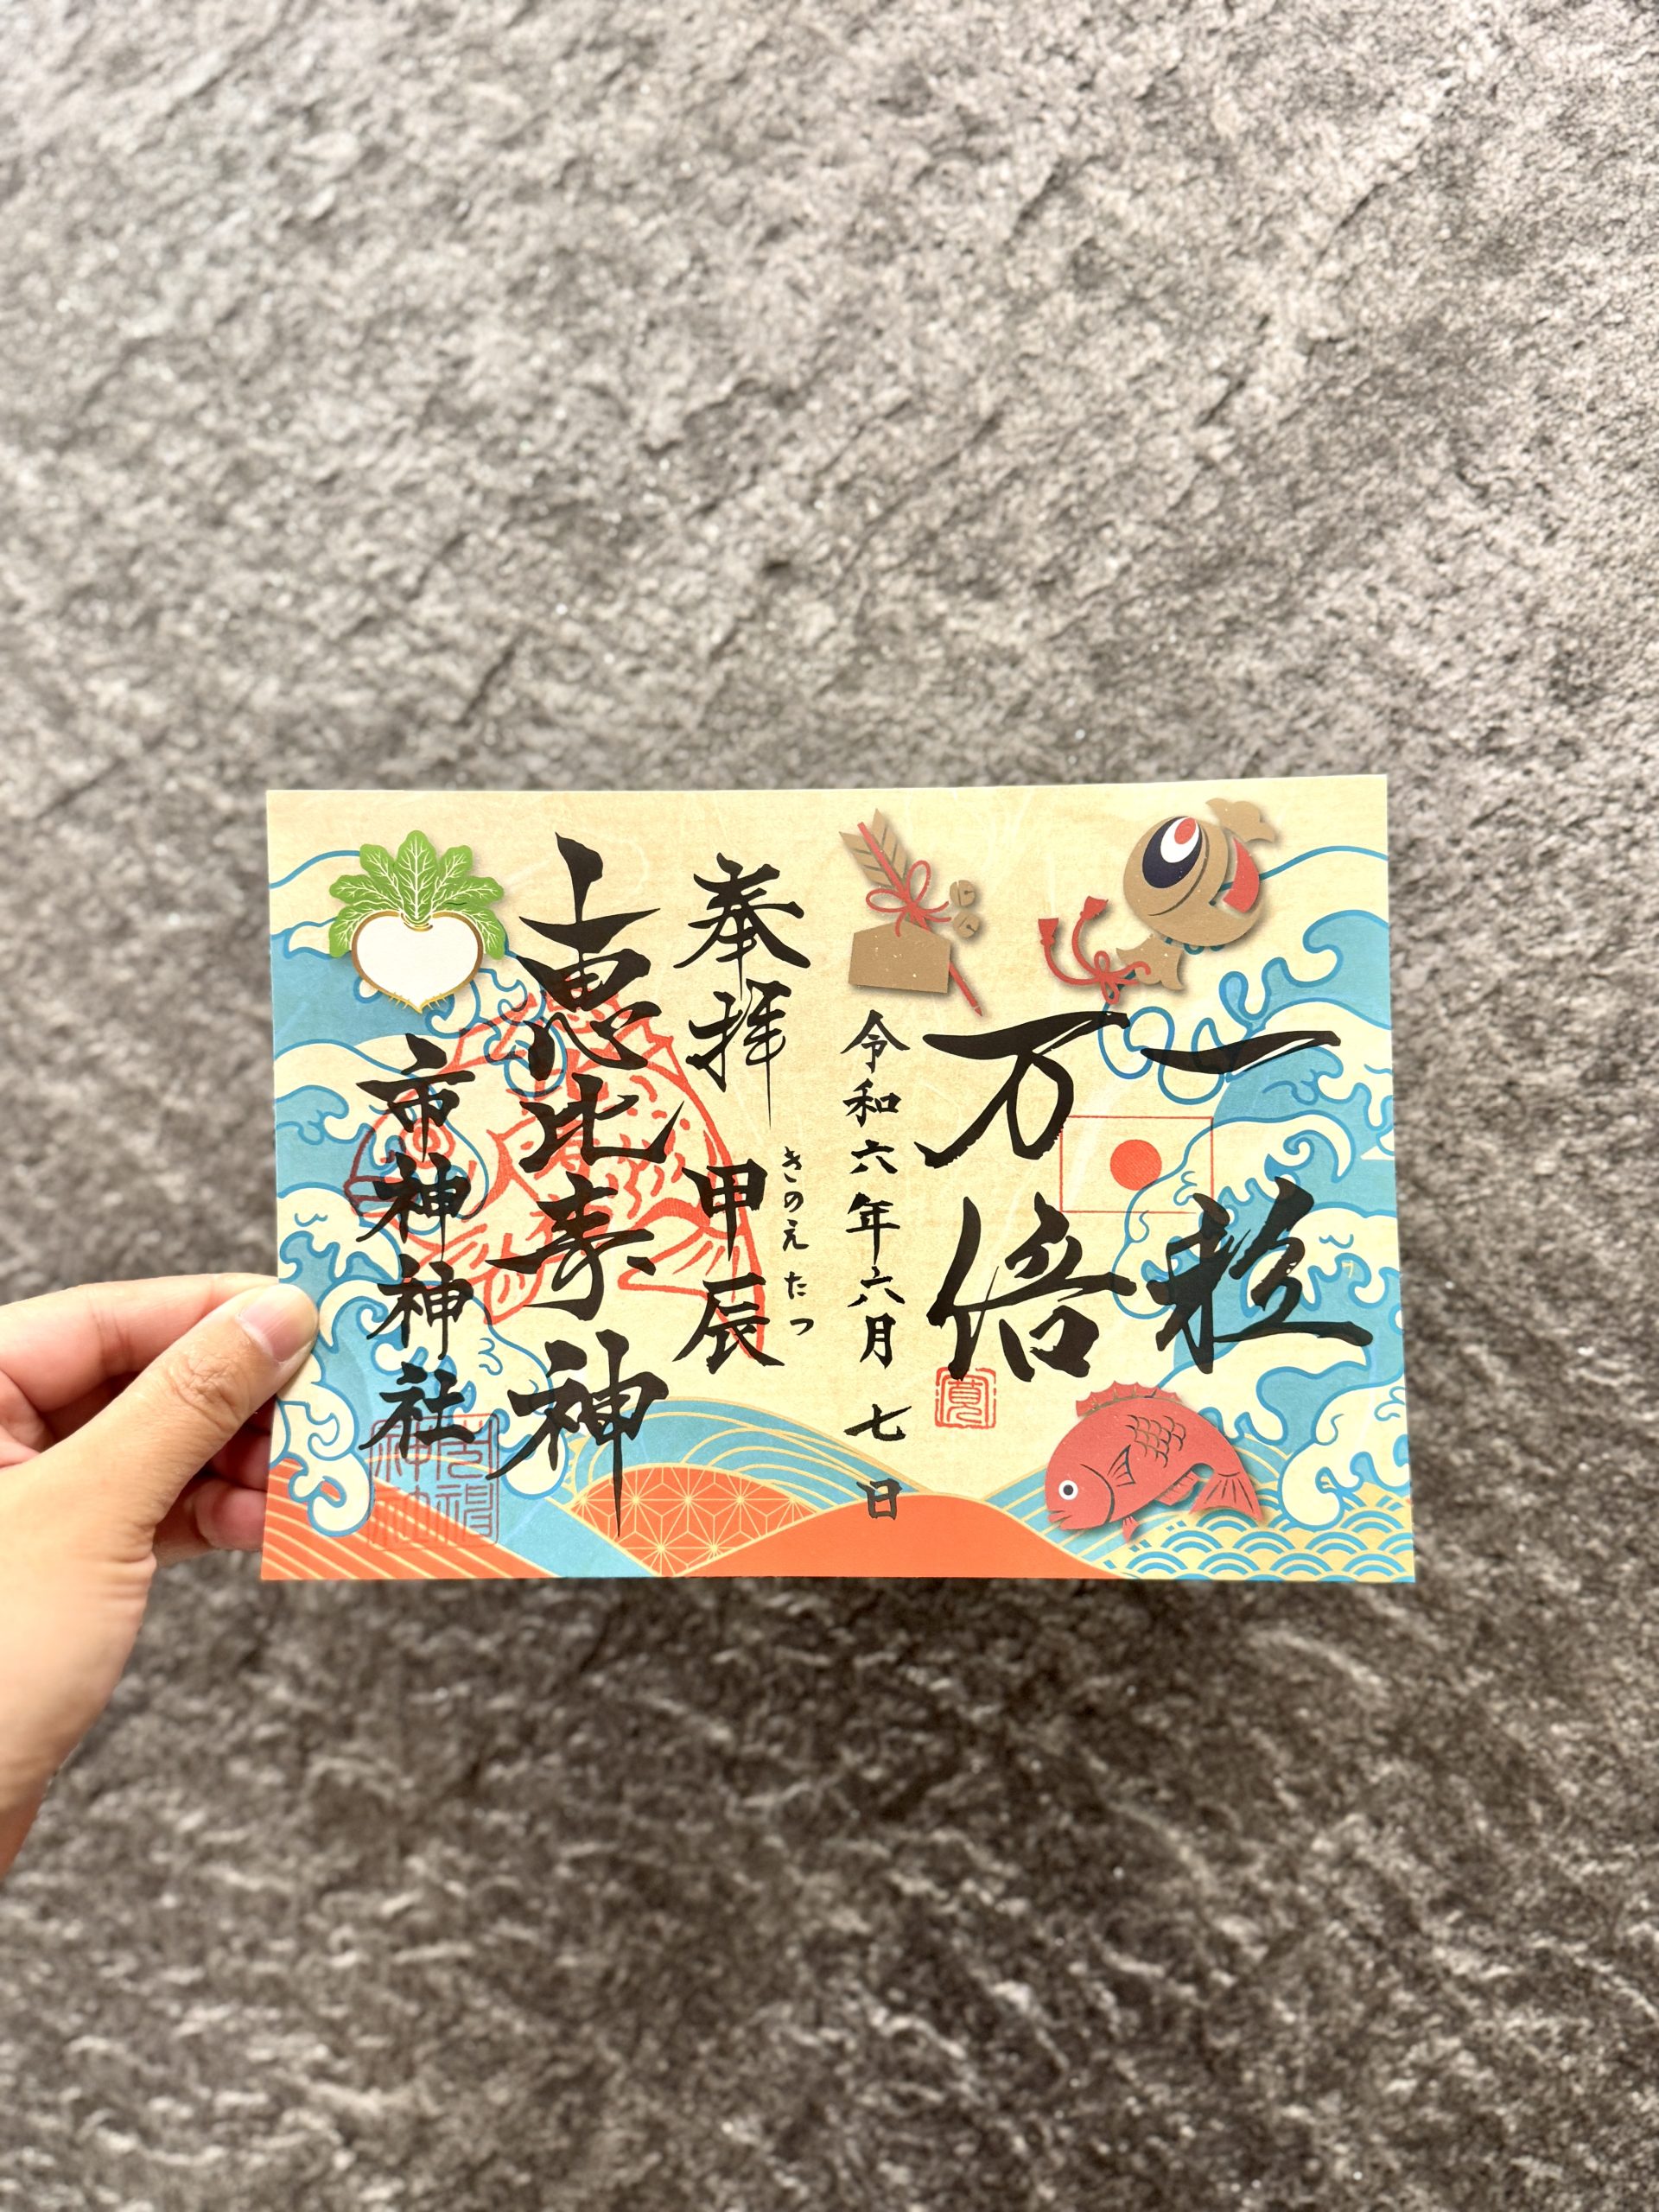 一粒
万倍
令和六年六月七日
奉拝
きのえたつ
甲辰
恵比寿神
市神神社